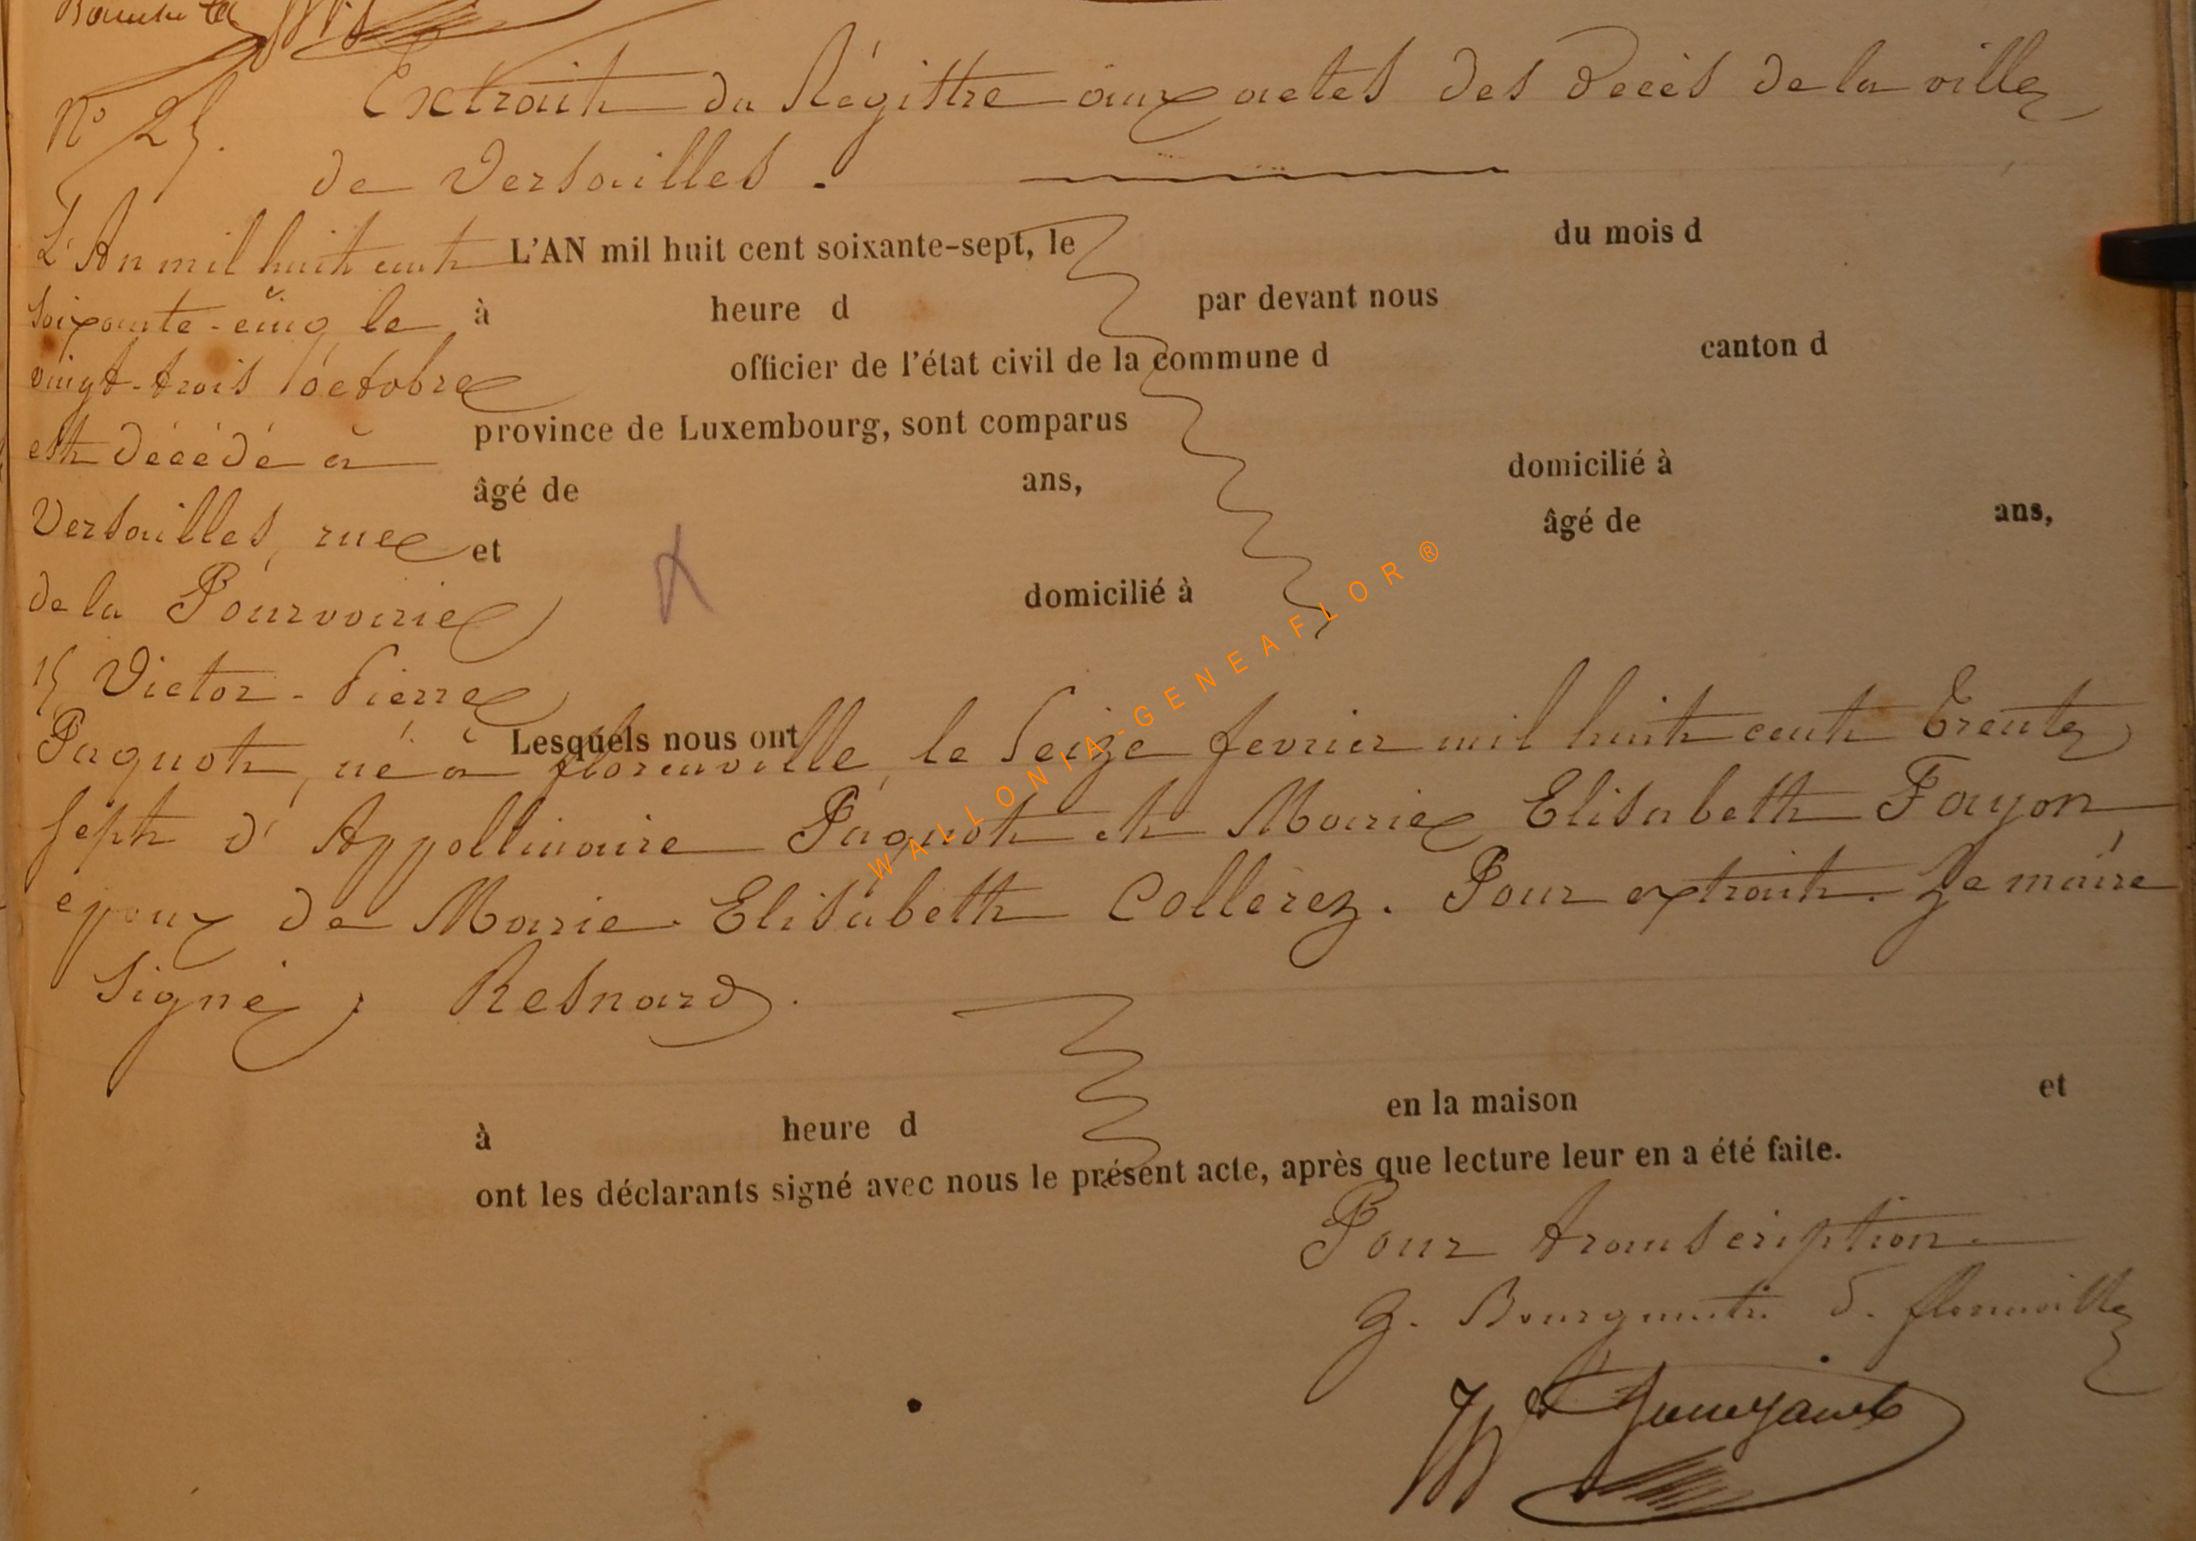 N° 25.
Extrait du Régistre aux actes des Décès de la ville
de Versailles.
L'An mil huit cent
soixante-cinq le
vingt-trois octobre
est décédé à
Versailles, rue
de la Pourvoirie
15 Victor-Pierre
L'AN mil huit cent soixante-sept, le du mois d
à heure d par devant nous
officier de l'état civil de la commune d canton d
province de Luxembourg, sont comparus
âgé de ans, domicilié à
et âgé de ans,
domicilié à
Lesquels nous ont
Paquot, né à florenville, le seize fevrier mil huit cent trente
sept d'Appollinaire Paquot et Marie Elisabeth Fayon,
époux de Marie Elisabeth Collerez. Pour extrait. Le maire
signé, Resnard.
à heure d en la maison et
ont les déclarants signé avec nous le présent acte, après que lecture leur en a été faite.
Pour transcription
L. Bourgmestre d. florenville
WALLONIA-GENEAFLOR®